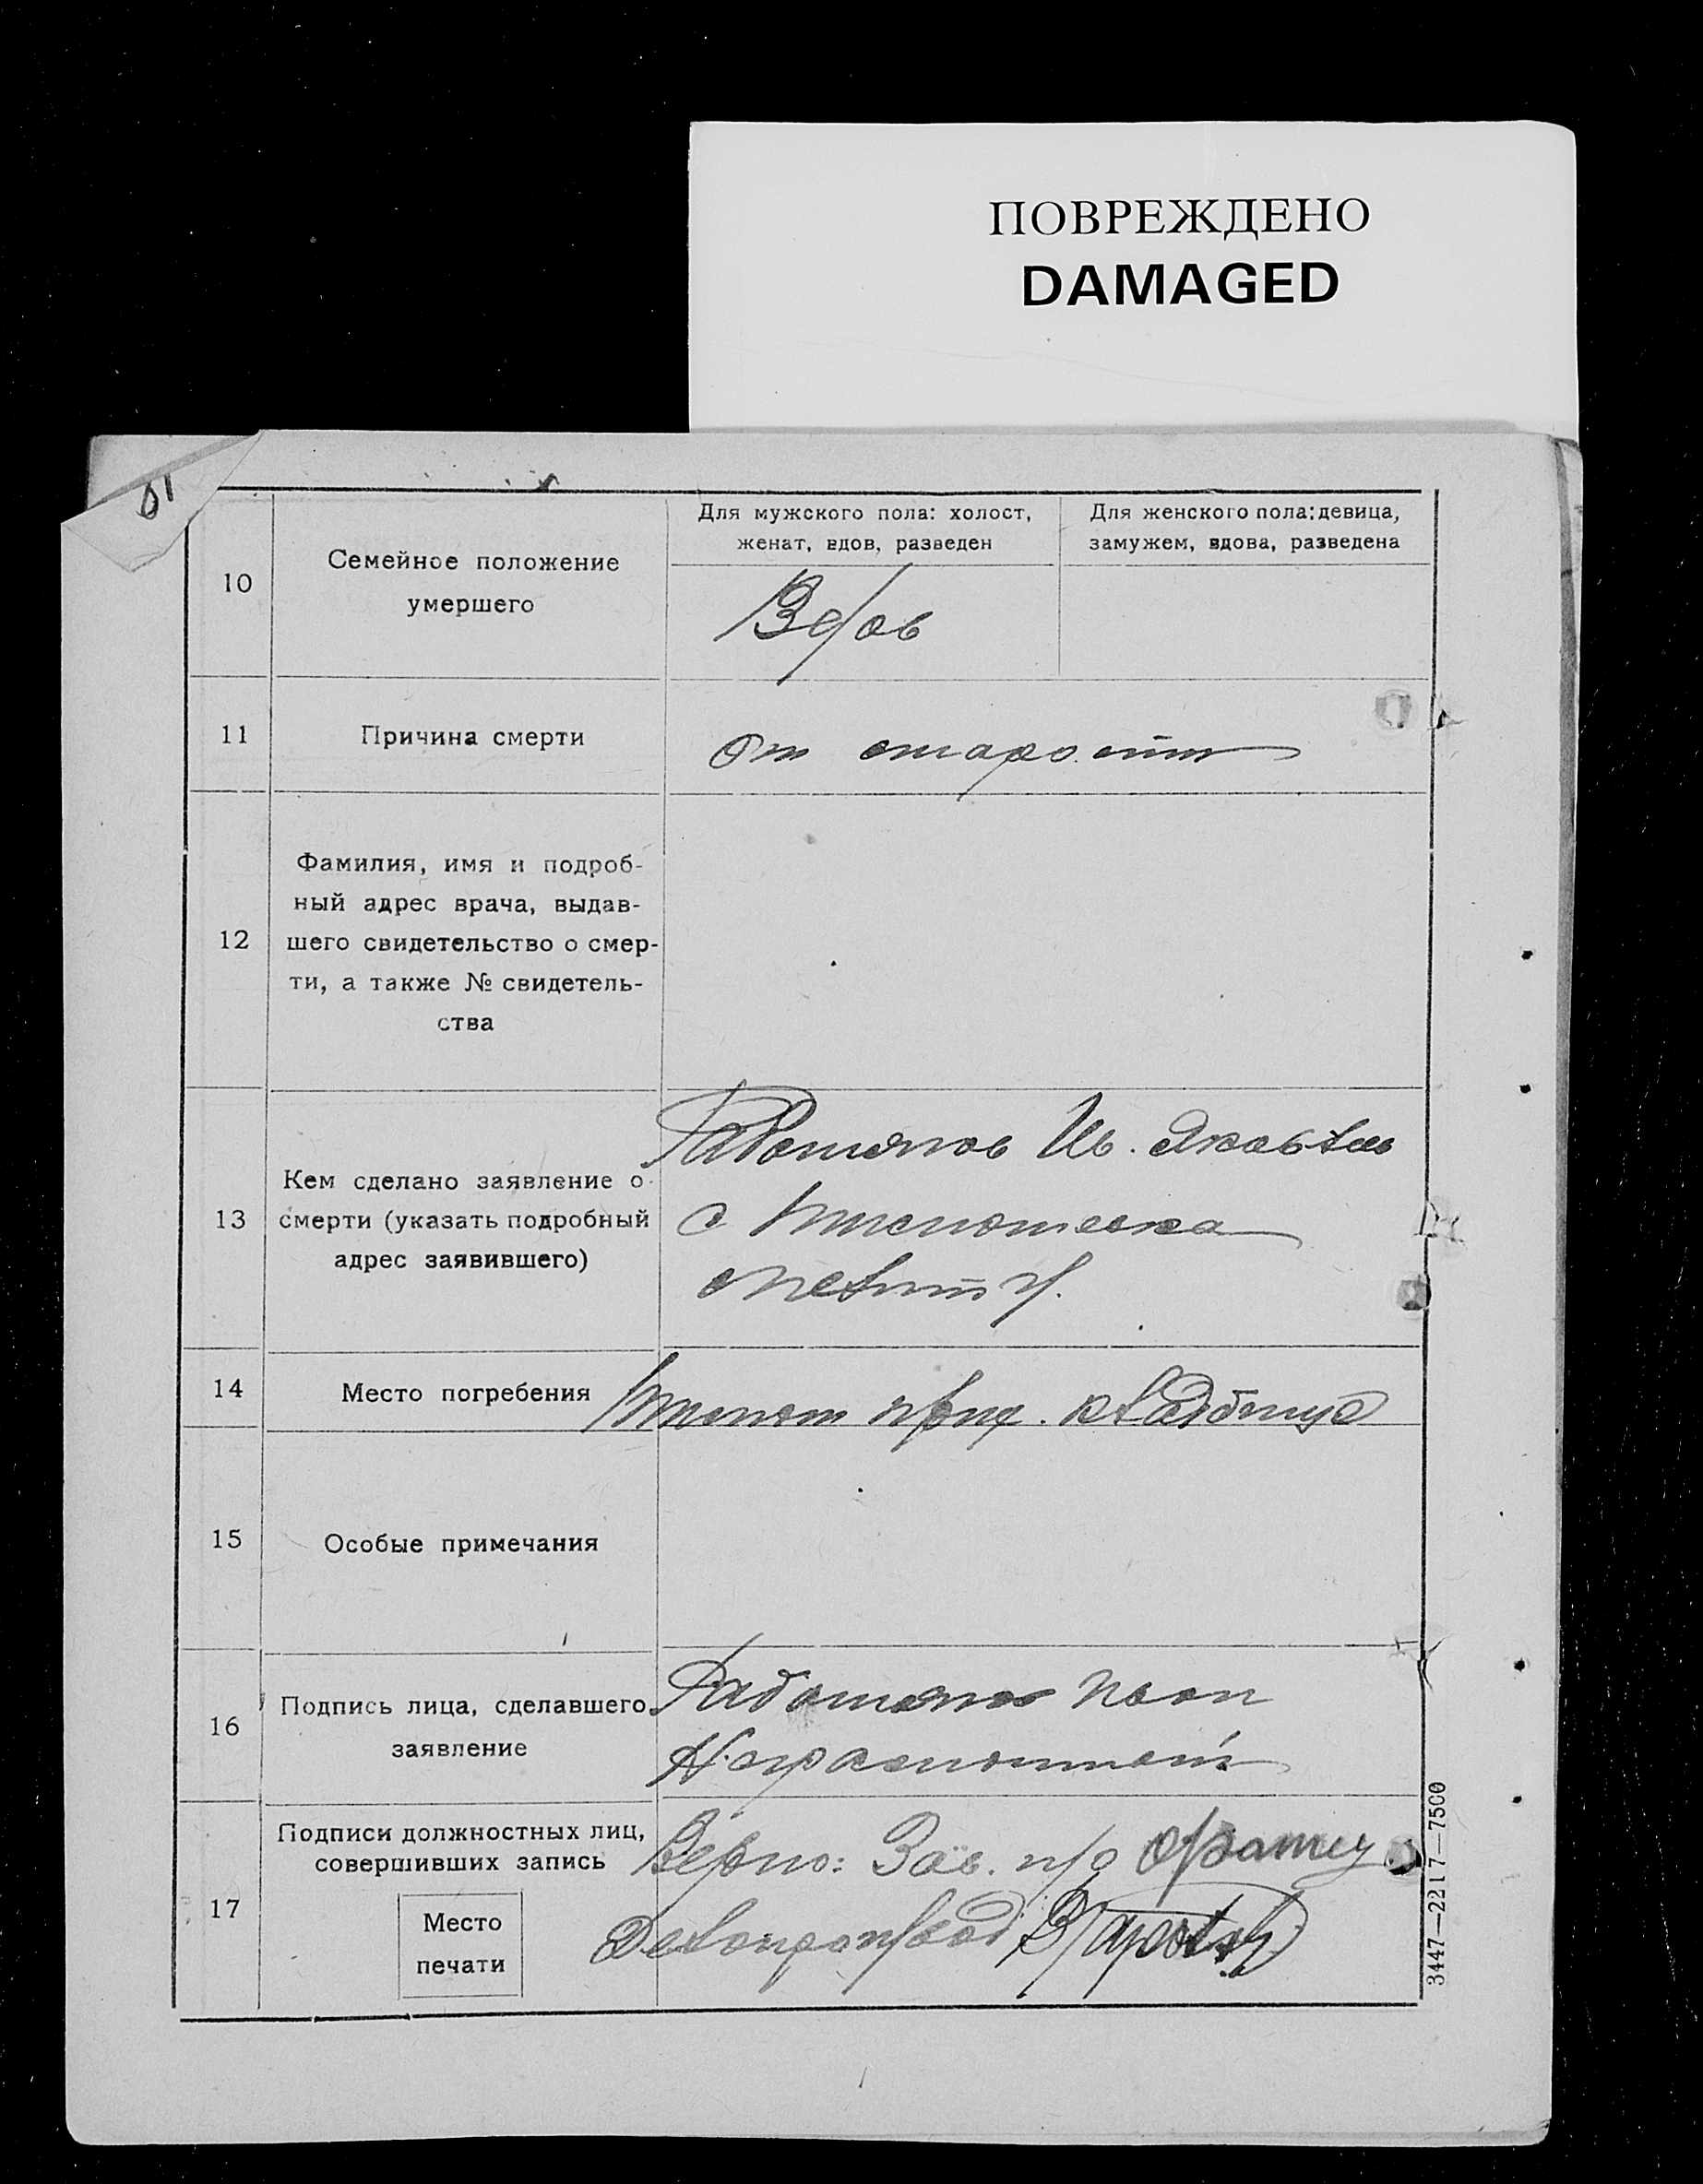 ПОВРЕЖДЕНО
DAMAGED
10
Семейное положение
умершего
Для мужского пола: холост,
женат, вдов, разведен
Для женского пола: девица,
замужем, вдова, разведена
Вдов
11
Причина смерти
От старости
12
Фамилия, имя и подроб-
ный адрес врача, выдав-
шего свидетельство о смер-
ти, а также № свидетель-
ства
13
Кем сделано заявление о
смерти (указать подробный
адрес заявившего)
Работягов Ив.
с
14
Место погребения
кладбище
15
Особые примечания
16
Подпись лица, сделавшего
заявление
Работягов
17
Подписи должностных лиц,
совершивших запись
Место
печати
Верно: Зав. п/о
Делопроизвод
3447—2217—7500